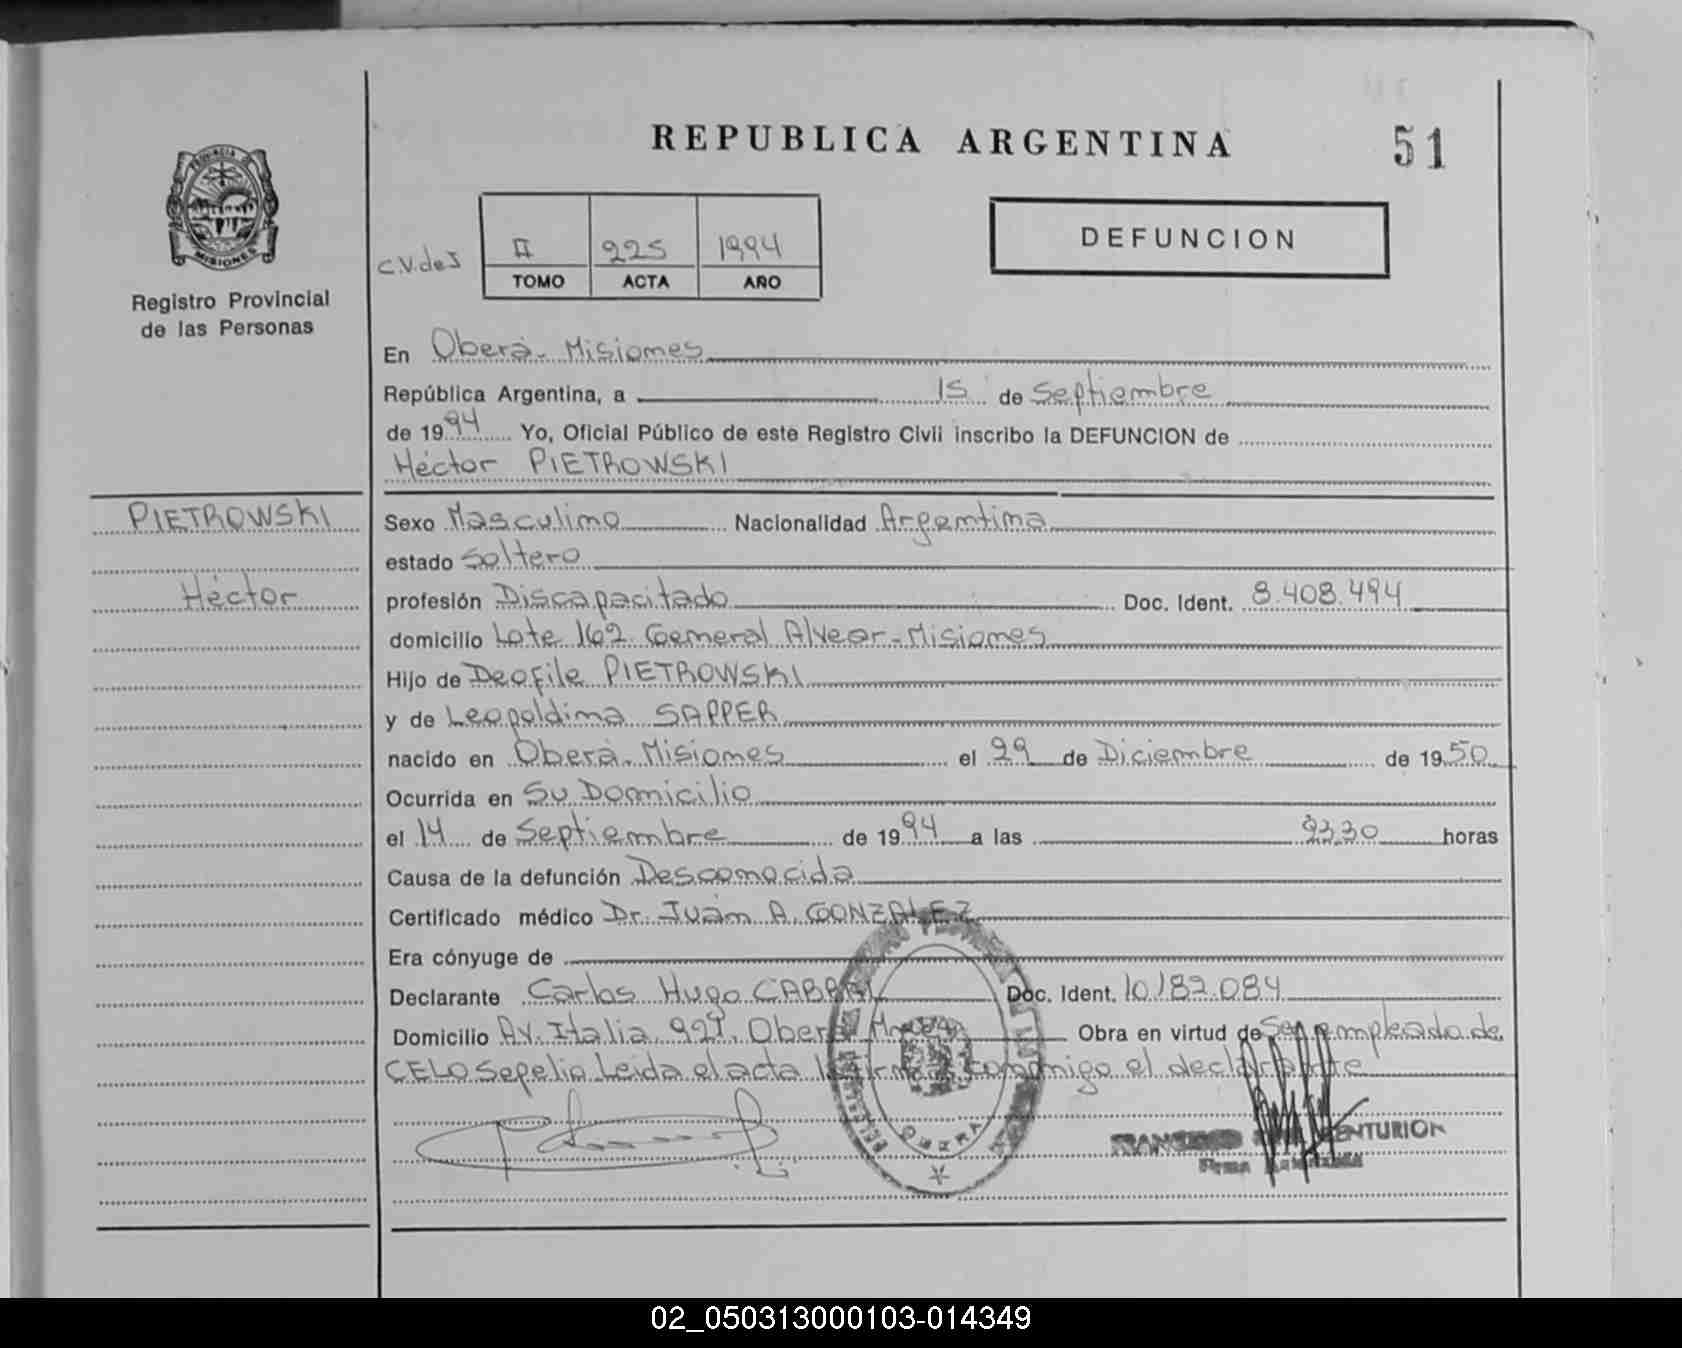 REPUBLICA ARGENTINA
51
PROVINCIA DE
MISIONES
Registro Provincial
de las Personas
C.V.de I
II 225 1994
TOMO ACTA AÑO
DEFUNCION
En Oberá - Misiones
República Argentina, a 15 de Septiembre
de 1994 Yo, Oficial Público de este Registro Civil inscribo la DEFUNCION de
Héctor PIETROWSKI
PIETROWSKI
Héctor
Sexo Masculino Nacionalidad Argentina
estado Soltero
profesión Discapacitado Doc. Ident. 8.408.494
domicilio Lote 162. General Alvear - Misiones
Hijo de Deofile PIETROWSKI
y de Leopoldina SAPPER
nacido en Oberá - Misiones el 29 de Diciembre de 1950
Ocurrida en Su Domicilio
el 14 de Septiembre de 1994 a las 23.30 horas
Causa de la defunción Desconocida
Certificado médico Dr. Juán A. GONZALEZ
Era cónyuge de
Declarante Carlos Hugo CABRAL Doc. Ident. 10.182.084
Domicilio Av. Italia 927, Oberá Obra en virtud de Ser empleado de
CELO Sepelio Leida el acta la firma conmigo el declarante
OBERA
CENTURION
02_050313000103-014349